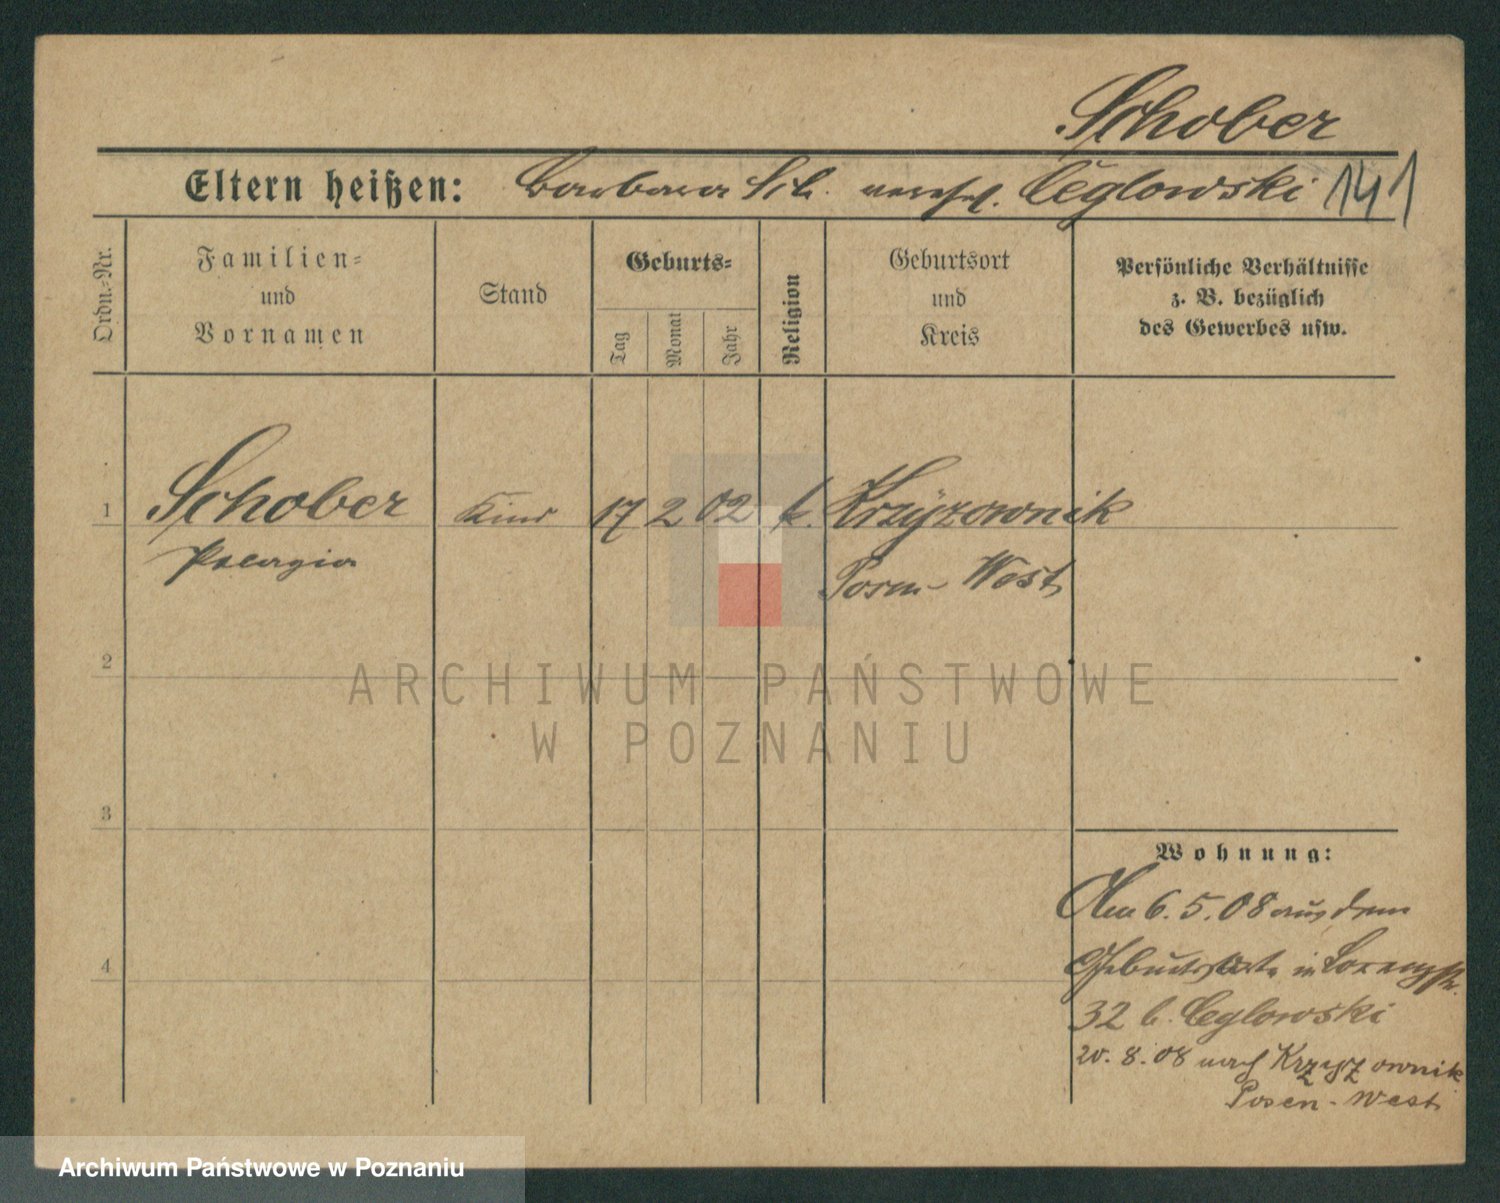 Schober
Eltern heißen: Barbara Sch. verehel. Ceglowski 141
Ordn.-Nr.
Familien-
und
Vornamen
Stand
Geburts-
Tag
Monat
Jahr
Religion
Geburtsort
und
Kreis
Persönliche Verhältnisse
z. B. bezüglich
des Gewerbes usw.
1 Schober Kind 17 2 02 k. Krzyzownik
Pelagia Posen-West
2
ARCHIWUM PAŃSTWOWE
W POZNANIU
3
Wohnung:
Am 6.5.08 aus dem
4 Geburtsorte in Lorenzstr.
32 b. Ceglowski
20.8.08 nach Krzyzownik
Posen-West
Archiwum Państwowe w Poznaniu